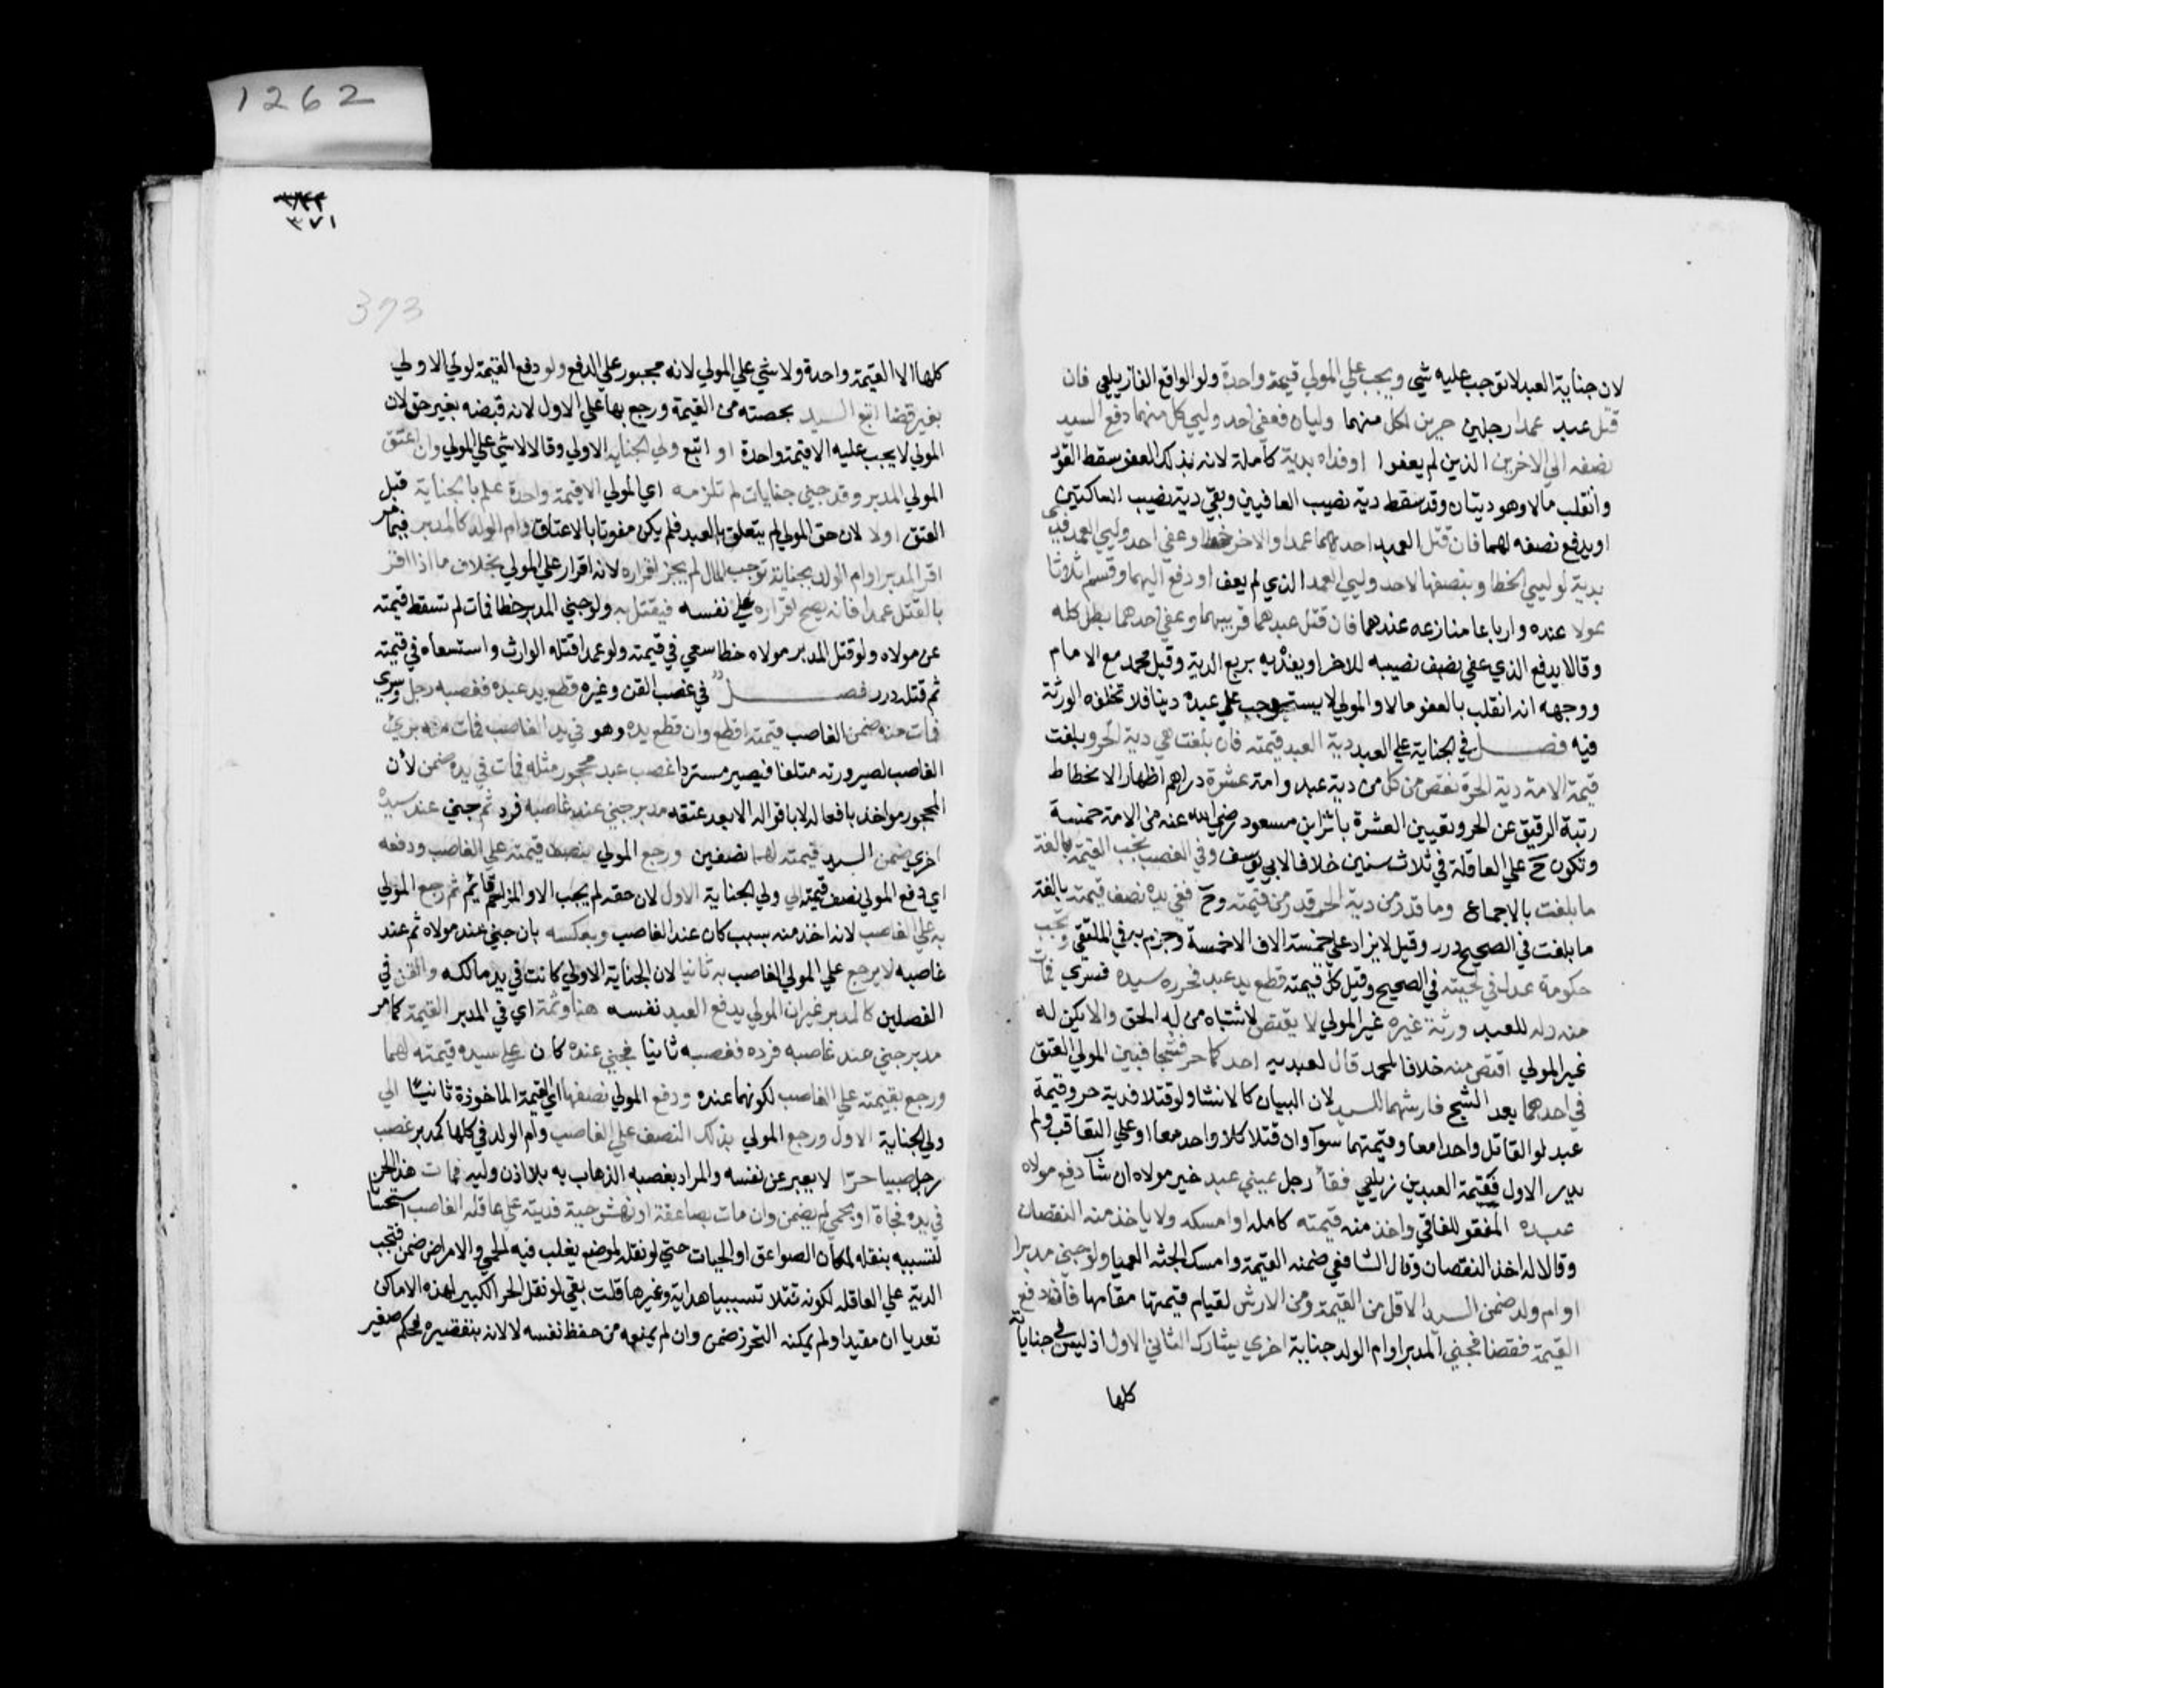 1262
٣٧١
373
لان جناية العبد لا توجب عليه شي ويجب علي المولي قيمة واحدة ولو الواقع الفا زيلعي فان
قتل عبد عمدا رجلين حرين لكل منهما وليان فعفي احد وليي كل منهما دفع السيد
نصفه الي الاخرين الذين لم يعفوا او فداه بدية كاملة لانه بذلك العفو سقط القود
وانقلب مالا وهو ديتان وقد سقط دية نصيب العافيين وبقي دية نصيب الساكتين
او يدفع نصفه لهما فان قتل العبد احدهما عمدا والاخر خطا وعفي احد وليي العمد فدي
بدية لوليي الخطا وبنصفها لاحد وليي العمد الذي لم يعف او دفع اليهما وقسم اثلاثا
عولا عنده وارباعا منازعه عندهما فان قتل عبدهما قريبهما وعفي احدهما بطل كله
وقالا يدفع الذي عفي نصف نصيبه للاخر او يفديه بربع الدية وقيل محمد مع الامام
ووجهه انه انقلب بالعفو مالا والمولي لا يستوجب علي عبده دينا فلا تخلفه الورثة
فيه فصل في الجناية علي العبد دية العبد قيمته فان بلغت هي دية الحر وبلغت
قيمة الامة دية الحرة نقص من كل من دية عبد وامة عشرة دراهم اظهارا لانحطاط
رتبة الرقيق عن الحر وتعيين العشرة باثر ابن مسعود رضي الله عنه من الامة خمسة
وتكون ح علي العاقلة في ثلاث سنين خلافا لابي يوسف وفي الغصب يجب القيمة بالغة
ما بلغت بالاجماع وما قدر من دية الحر قدر من قيمته وح ففي يده نصف قيمته بالغة
ما بلغت في الصحيح درر وقيل لا يزاد علي خمسة الاف الا خمسة وجزم به في الملتقي وتجب
حكومة عدل في لحيته في الصحيح وقيل كل قيمته قطع يد عبد فحرره سيده فسري فمات
منه وله للعبد ورثة غيره غير المولي لا يقتص لاشتباه من له الحق والا يكن له
غير المولي اقتص منه خلافا لمحمد قال لعبديه احدكما حر فشجا فبين المولي العتق
في احدهما بعد الشج فارشهما للسيد لان البيان كالانشا ولو قتلا فدية حر وقيمة
عبد لو القاتل واحدا معا وقيمتهما سوآ وان قتلا كلا واحد معا او علي التعاقب ولم
يدر الاول فقيمة العبدين زيلعي فقأ رجل عيني عبد خير مولاه ان شآ دفع مولاه
عبده المفقو للفاقي واخذ منه قيمته كامله او امسكه ولا ياخذ منه النقصان
وقالا له اخذ النقصان وقال الشافعي ضمنه القيمة وامسك الجثة العميا ولو جني مدبر
او ام ولد ضمن السيد الاقل من القيمة ومن الارش لقيام قيمتها مقامها فان دفع
القيمة فقضا فجني المدبر او ام الولد جناية اخري يشارك الثاني الاول اذ ليس في جناياته
كلها
كلها الا القيمة واحدة ولا شي علي المولي لانه مجبور علي الدفع ولو دفع القيمة لولي الاولي
بغير قضا اتبع السيد بحصته من القيمة ورجع بها علي الاول لانه قبضه بغير حق لان
المولي لا يجب عليه الا قيمة واحدة او اتبع ولي الجناية الاولي وقالا لا شي علي المولي وان اعتق
المولي المدبر وقد جني جنايات لم تلزمه اي المولي الا قيمة واحدة علم بالجناية قبل
العتق اولا لان حق المولي لم يتعلق بالعبد فلم يكن مفوتا بالاعتاق وام الولد كالمدبر فيما مر
اقر المدبر او ام الولد بجناية توجب المال لم يجز اقراره لانه اقرار علي المولي بخلاف ما اذا اقر
بالقتل عمدا فانه يصح اقراره علي نفسه فيقتل به ولو جني المدبر خطا فمات لم تسقط قيمته
عن مولاه ولو قتل المدبر مولاه خطا سعي في قيمته ولو عمدا قتله الوارث واستسعاه في قيمته
ثم قتله درر فصل في غصب القن وغيره قطع يد عبده فغصبه رجل وسري
فمات منه ضمن الغاصب قيمته اقطع وان قطع يده وهو في يد الغاصب فمات منه برئ
الغاصب لصيرورته متلفا فيصير مستردا غصب عبد محجور مثله فمات في يده ضمن لان
المحجور مواخذ بافعاله لا باقواله الا بعد عتقه مدبر جني عند غاصبه فرد ثم جني عند سيده
اخري ضمن السيد قيمته لهما نصفين ورجع المولي بنصف قيمته علي الغاصب ودفعه
اي دفع المولي نصف قيمته الي ولي الجناية الاول لان حقه لم يجب الا والمزاحم قائم ثم رجع المولي
به علي الغاصب لانه اخذ منه بسبب كان عند الغاصب وبعكسه بان جني عند مولاه ثم عند
غاصبه لا يرجع علي المولي الغاصب به ثانيا لان الجناية الاولي كانت في يد مالكه والقن في
الفصلين كالمدبر غير ان المولي يدفع العبد نفسه هنا وثمة اي في المدبر القيمة كما مر
مدبر جني عند غاصبه فرده فغصبه ثانيا فجني عنده كان علي سيده قيمته لهما
ورجع بقيمته علي الغاصب لكونهما عنده ودفع المولي نصفها اي القيمة الماخوذة ثانيا الي
ولي الجناية الاول ورجع المولي بذلك النصف علي الغاصب وام الولد في كلها كمدبر غصب
رجل صبيا حرّا لا يعبر عن نفسه والمراد بغصبه الذهاب به بلا اذن وليه فمات هذا الحر
في يده فجاة او بحمي لم يضمن وان مات بصاعقة او نهش حية فديته علي عاقلة الغاصب استحسانا
لتسببه بنقله لمكان الصواعق او الحيات حتي لو نقله لموضع يغلب فيه الحمي والامراض ضمن فتجب
الدية علي العاقله لكونه قتلا تسببيا هداية وغيرها قلت بقي لو نقل الحر الكبير لهذه الاماكن
تعديا ان مقيدا ولم يمكنه التحرز ضمن وان لم يمنعه من حفظ نفسه لا لانه بتقصيره فحكم صغير